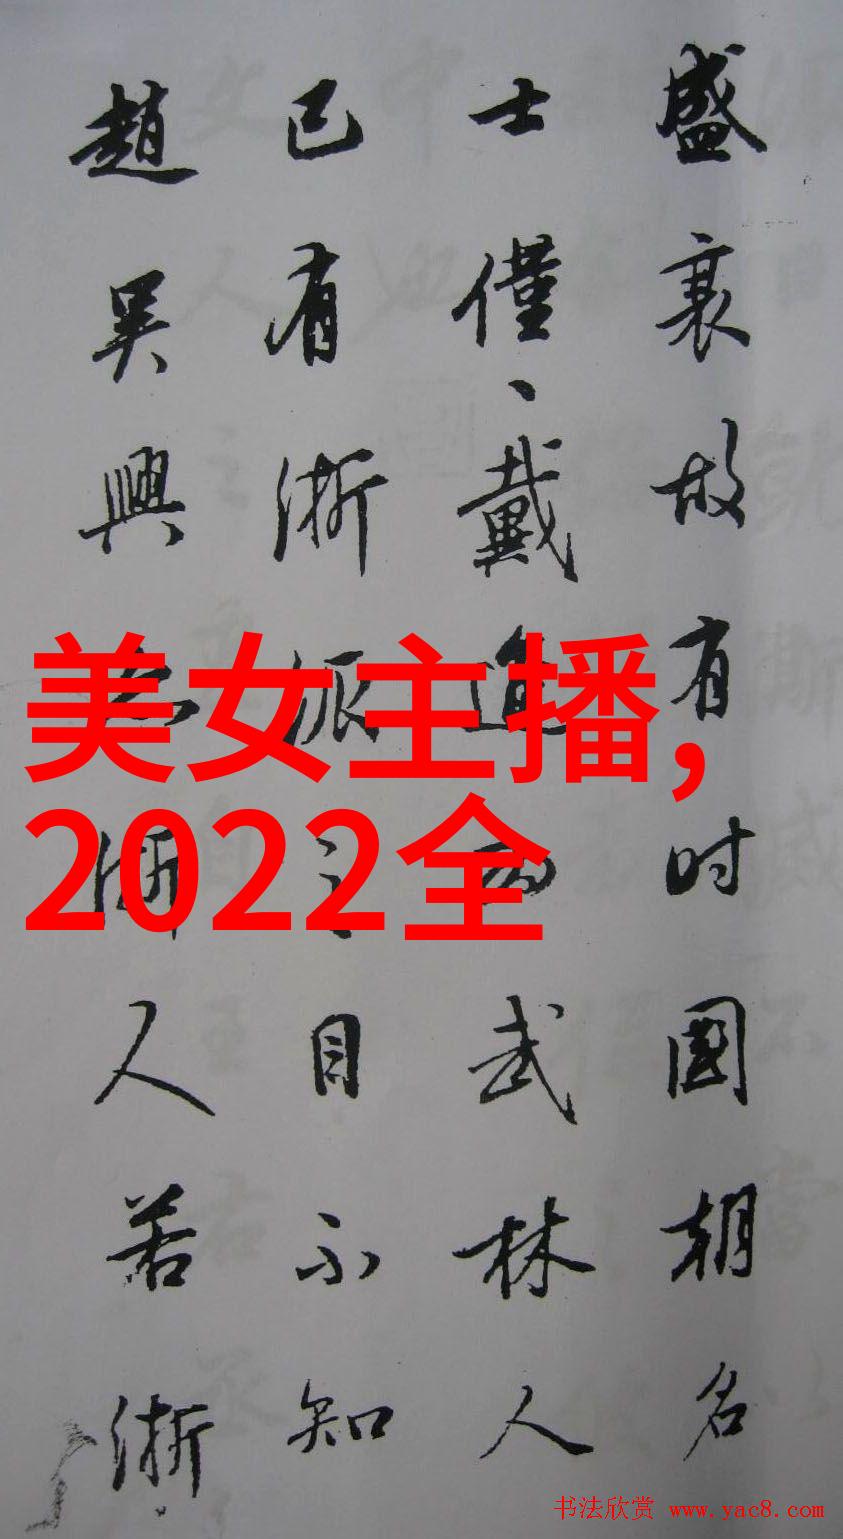 盛衰故有时國朝名
士僅、戴進為武林人
已有浙派之目不知
趙吳興亦浙人若浙
美女主播,
2022全
书法欣赏 www.yac8.com